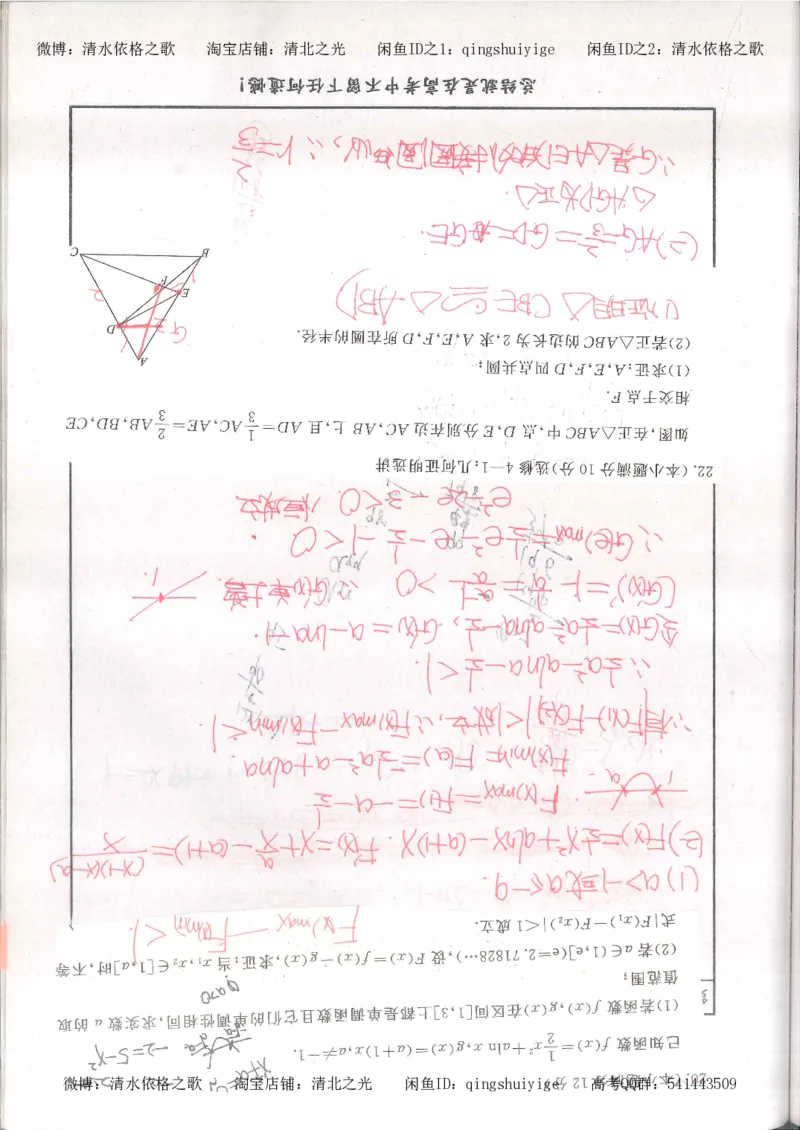 微博：清水依格之歌 淘宝店铺：清北之光 闲鱼ID之1：qingshuiyige 闲鱼ID之2：清水依格之歌
(本小题满分12分)
已知函数f(x)=1/2x²+aln x,g(x)=(a+1)x,a≠-1.
(1)若函数f(x),g(x)在区间[1,3]上都是单调函数且它们的单调性相同,求实数a的取
值范围;
(2)若a∈(1,e](e=2.71828…),设F(x)=f(x)-g(x),求证:当x₁,x₂∈[1,a]时,不等
式|F(x₁)-F(x₂)|<1成立.
F(x)max-F(x)min<1.
(1)a>-1或a≤-9.
(2)F(x)=1/2x²+alnx-(a+1)x. F'(x)=x+a/x-(a+1)=(x-1)(x-a)/x
F(x)max=F(1)=-a-1/2
F(x)min=F(a)=-1/2a²-a+alna
|F(x₁)-F(x₂)|<1成立,∴F(x)max-F(x)min<1
∴1/2a²-alna-1/2<1.
令G(a)=1/2a²-alna-1/2, G'(a)=a-lna-1.
=1-1/a=(a-1)/a>0
∴G(e)max=1/2e²-e-1/2-1<0
恒成立
22.(本小题满分10分)选修4—1:几何证明选讲
如图,在正△ABC中,点D,E分别在边AC,AB上,且AD=1/3AC,AE=2/3AB,BD,CE
相交于点F.
(1)求证:A,E,F,D四点共圆;
(2)若正△ABC的边长为2,求A,E,F,D所在圆的半径.
A
D
G
E
F
B
C
(1)证明△CBE≌△ABD
(2)AG=2/3=GD=GE.
△AGD为正△
∴G是△AED外接圆圆心,∴r=2/3
总结就是在高考中不留下任何遗憾!
微博：清水依格之歌 淘宝店铺：清北之光 闲鱼ID：qingshuiyige 高考QQ群：541443509